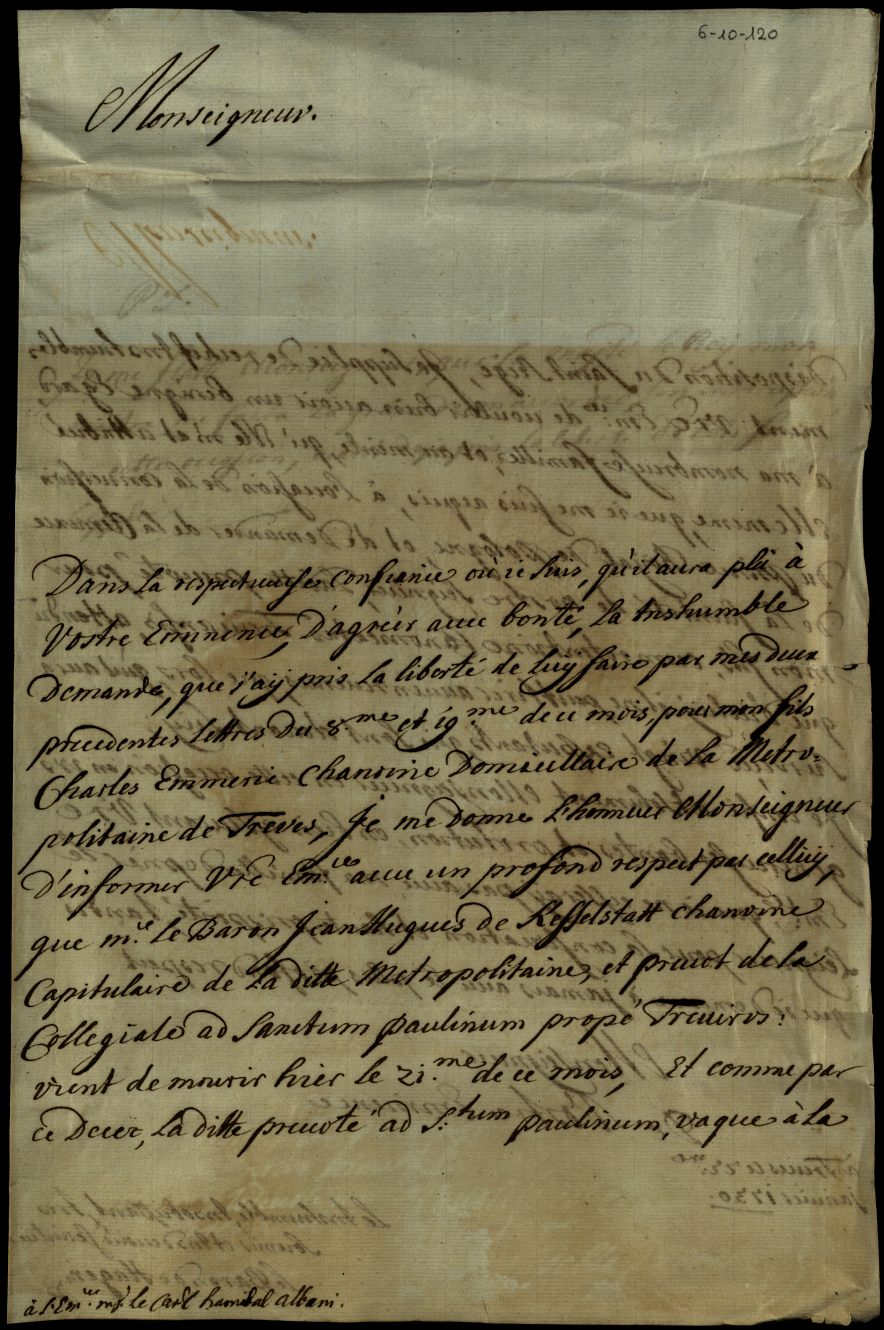 6-10-120
Monseigneur.
Dans la respectueuse confiance où ie suis, qu'il aura plû à
Vostre Eminence, D'agréer avec bonté, la treshumble
Demande, que j'aÿ pris la liberté de luÿ faire par mes deux
precedentes lettres du 8.me et 19.me de ce mois, pour mon fils
Charles Emmeric Chanoine Domicillaire de la Metro=
politaine de Treves, Je me donne L'honneur Monseigneur
D'informer Vre Em.ce avec un profond respect par celluÿ,
que mr. le Baron Jean Hugues de Kesselstatt chanoine
Capitulaire de la ditte Metropolitaine, et prevot de la
Collegiale ad Sanctum paulinum propé Treviros:
vient de mourir hier le 21.me de ce mois, Et comme par
ce Decez, la ditte prevoté ad S.tum paulinum, vaque à la
à S. Em.ce mgr. le Card. hannibal albani.